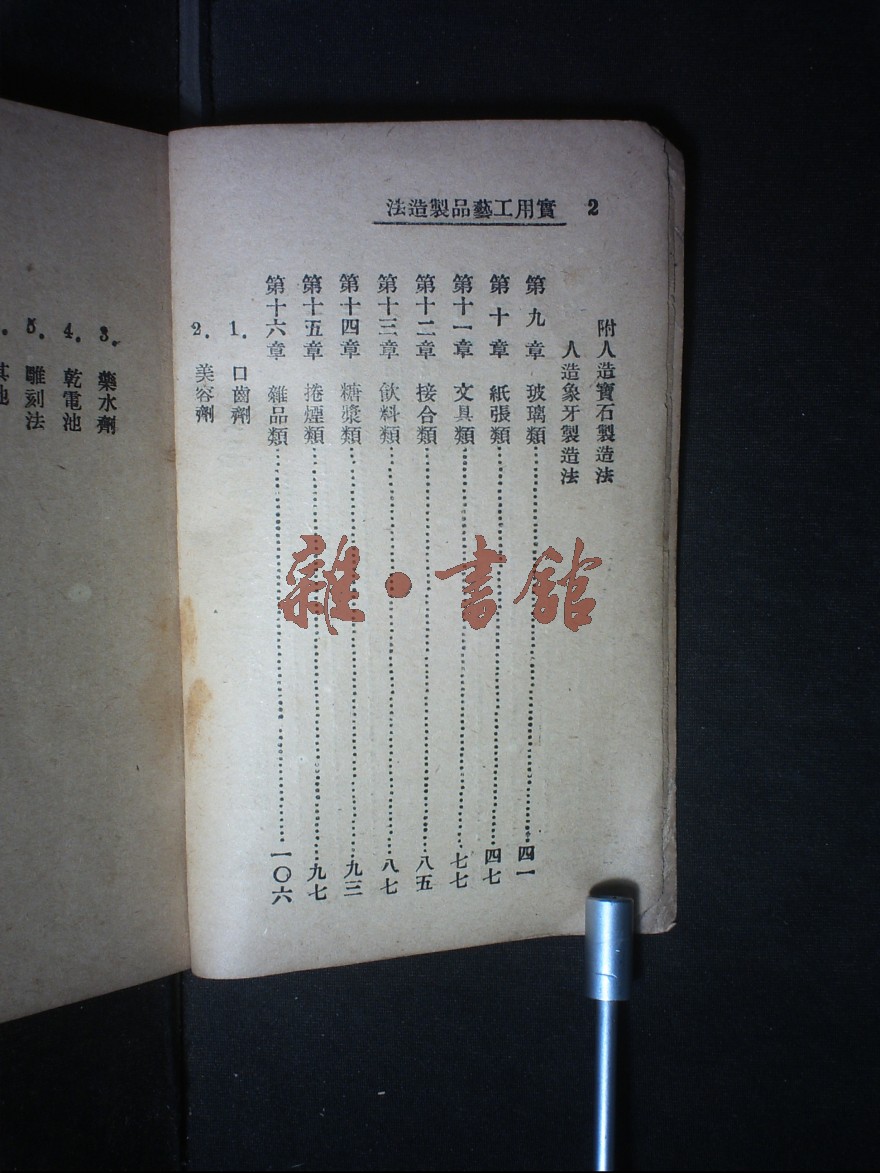 實用工藝品製造法 2
附人造寶石製造法
人造象牙製造法
第九章 玻璃類 四一
第十章 紙張類 四七
第十一章 文具類 七七
第十二章 接合類 八五
第十三章 飲料類 八七
第十四章 糖漿類 九三
第十五章 捲煙類 九七
第十六章 雜品類 一〇六
1. 口齒劑
2. 美容劑
3. 藥水劑
4. 乾電池
5. 雕刻法
雜·書館